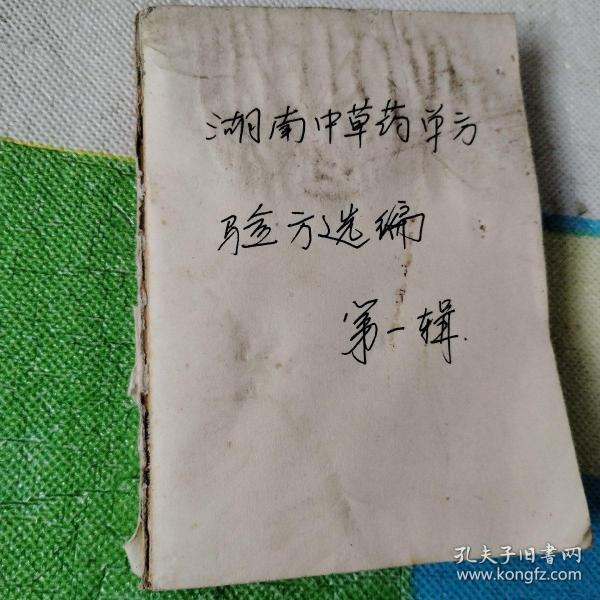 湖南中草药单方
验方选编
第一辑.
孔夫子旧书网
www.kongfz.com